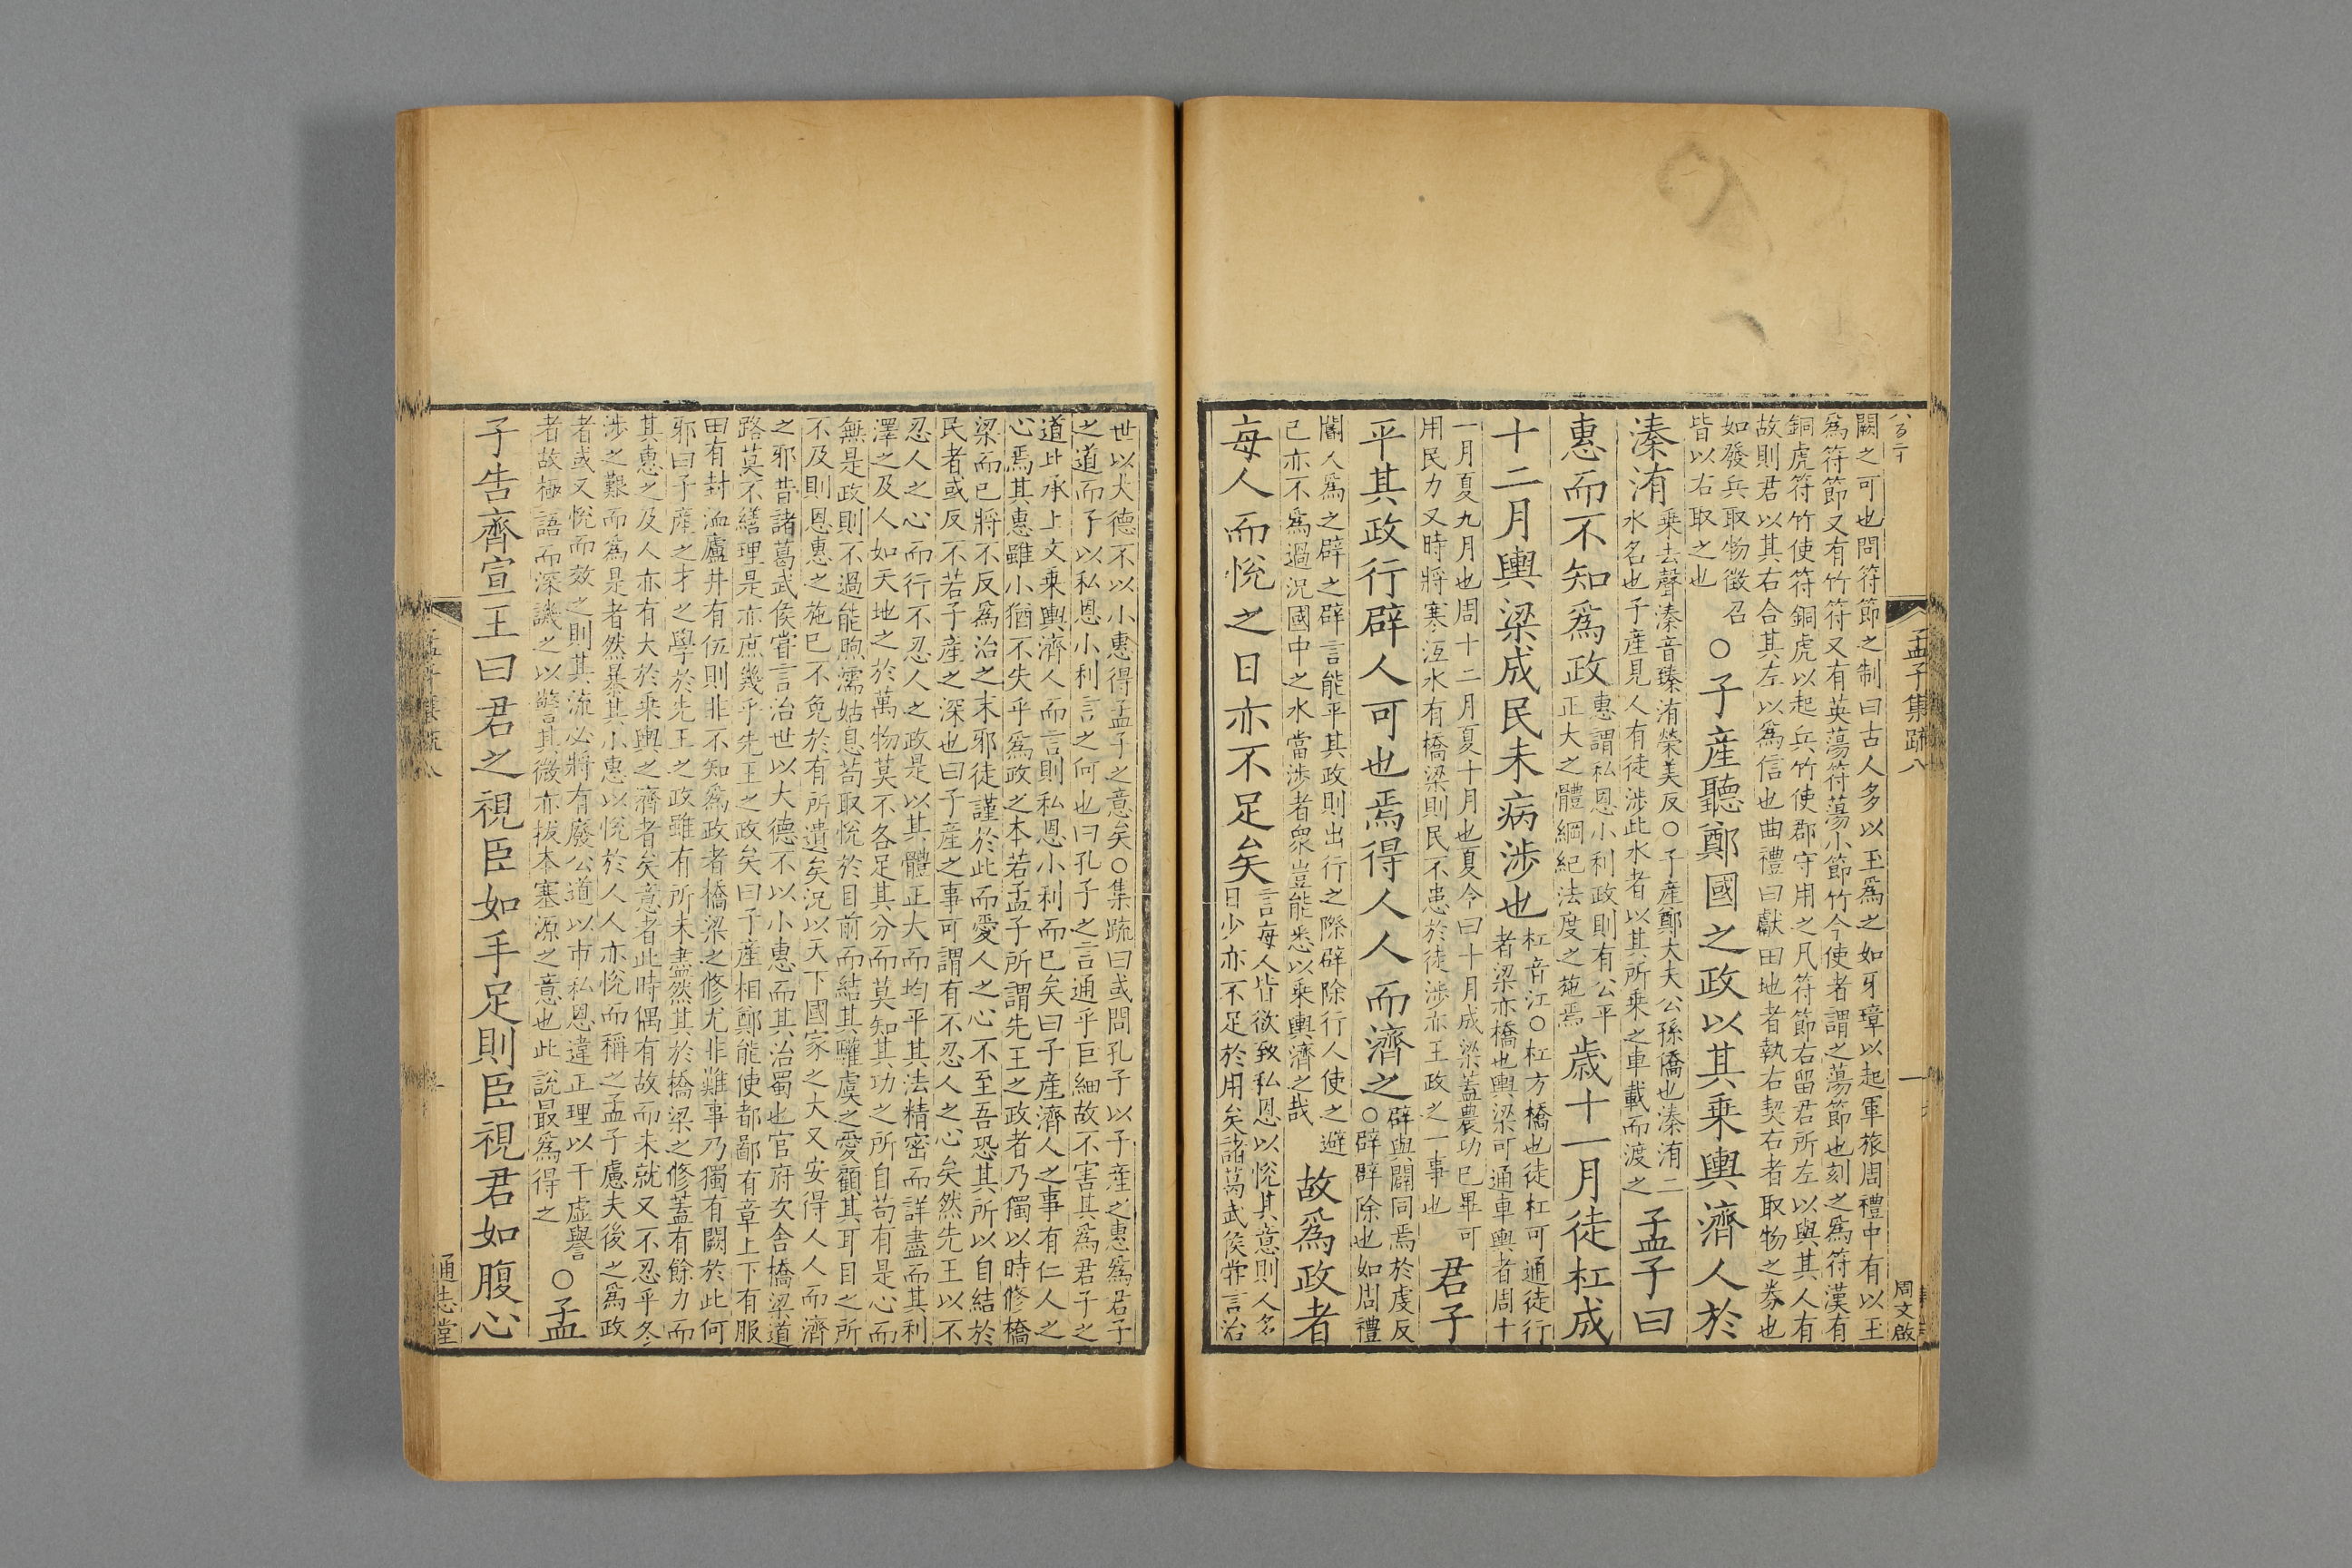 孟子集疏八
周文啟
闕之可也問符節之制曰古人多以玉爲之如牙璋以起軍旅周禮中有以玉
爲符節又有竹符又有英蕩符蕩小節竹今使者謂之蕩節也刻之爲符漢有
銅虎符竹使符銅虎以起兵竹使郡守用之凡符節右留君所左以與其人有
故則君以其右合其左以爲信也曲禮曰獻田地者執右契右者取物之券也
如發兵取物徵召
皆以右取之也
○子產聽鄭國之政以其乘輿濟人於
溱洧
乘去聲溱音臻洧榮美反○子產鄭大夫公孫僑也溱洧二
水名也子產見人有徒涉此水者以其所乘之車載而渡之
孟子曰
惠而不知爲政
惠謂私恩小利政則有公平
正大之體綱紀法度之施焉
歲十一月徒杠成
十二月輿梁成民未病涉也
杠音江○杠方橋也徒杠可通徒行
者梁亦橋也輿梁可通車輿者周十
一月夏九月也周十二月夏十月也夏令曰十月成梁蓋農功已畢可
用民力又時將寒沍水有橋梁則民不患於徒涉亦王政之一事也
君子
平其政行辟人可也焉得人人而濟之
辟與闢同焉於虔反
○辟辟除也如周禮
閽人爲之辟之辟言能平其政則出行之際辟除行人使之避
己亦不爲過況國中之水當涉者衆豈能悉以乘輿濟之哉
故爲政者
每人而悅之日亦不足矣
言每人皆欲致私恩以悅其意則人多
日少亦不足於用矣諸葛武侯嘗言治
世以大德不以小惠得孟子之意矣○集疏曰或問孔子以子產之惠爲君子
之道而子以私恩小利言之何也曰孔子之言通乎巨細故不害其爲君子之
道此承上文乘輿濟人而言則私恩小利而已矣曰子產濟人之事有仁人之
心焉其惠雖小猶不失乎爲政之本若孟子所謂先王之政者乃獨以時修橋
梁而已將不反爲治之末邪徒謹於此而愛人之心不至吾恐其所以自結於
民者或反不若子產之深也曰子產之事可謂有不忍人之心矣然先王以不
忍人之心而行不忍人之政是以其體正大而均平其法精密而詳盡而其利
澤之及人如天地之於萬物莫不各足其分而莫知其功之所自苟有是心而
無是政則不過能煦濡姑息苟取悅於目前而結其驩虞之愛顧其耳目之所
不及則恩惠之施已不免於有所遺矣況以天下國家之大又安得人人而濟
之邪昔諸葛武侯嘗言治世以大德不以小惠而其治蜀也官府次舍橋梁道
路莫不繕理是亦庶幾乎先王之政矣曰子產相鄭能使都鄙有章上下有服
田有封洫廬井有伍則非不知爲政者橋梁之修尤非難事乃獨有闕於此何
邪曰子產之才之學於先王之政雖有所未盡然其於橋梁之修蓋有餘力而
其惠之及人亦有大於乘輿之濟者矣意者此時偶有故而未就又不忍乎冬
涉之艱而爲是者然暴其小惠以悅於人人亦悅而稱之孟子慮夫後之爲政
者或又悅而效之則其流必將有廢公道以市私恩違正理以干虛譽
者故極語而深譏之以警其微亦拔本塞源之意也此說最爲得之
○孟
子告齊宣王曰君之視臣如手足則臣視君如腹心
通志堂